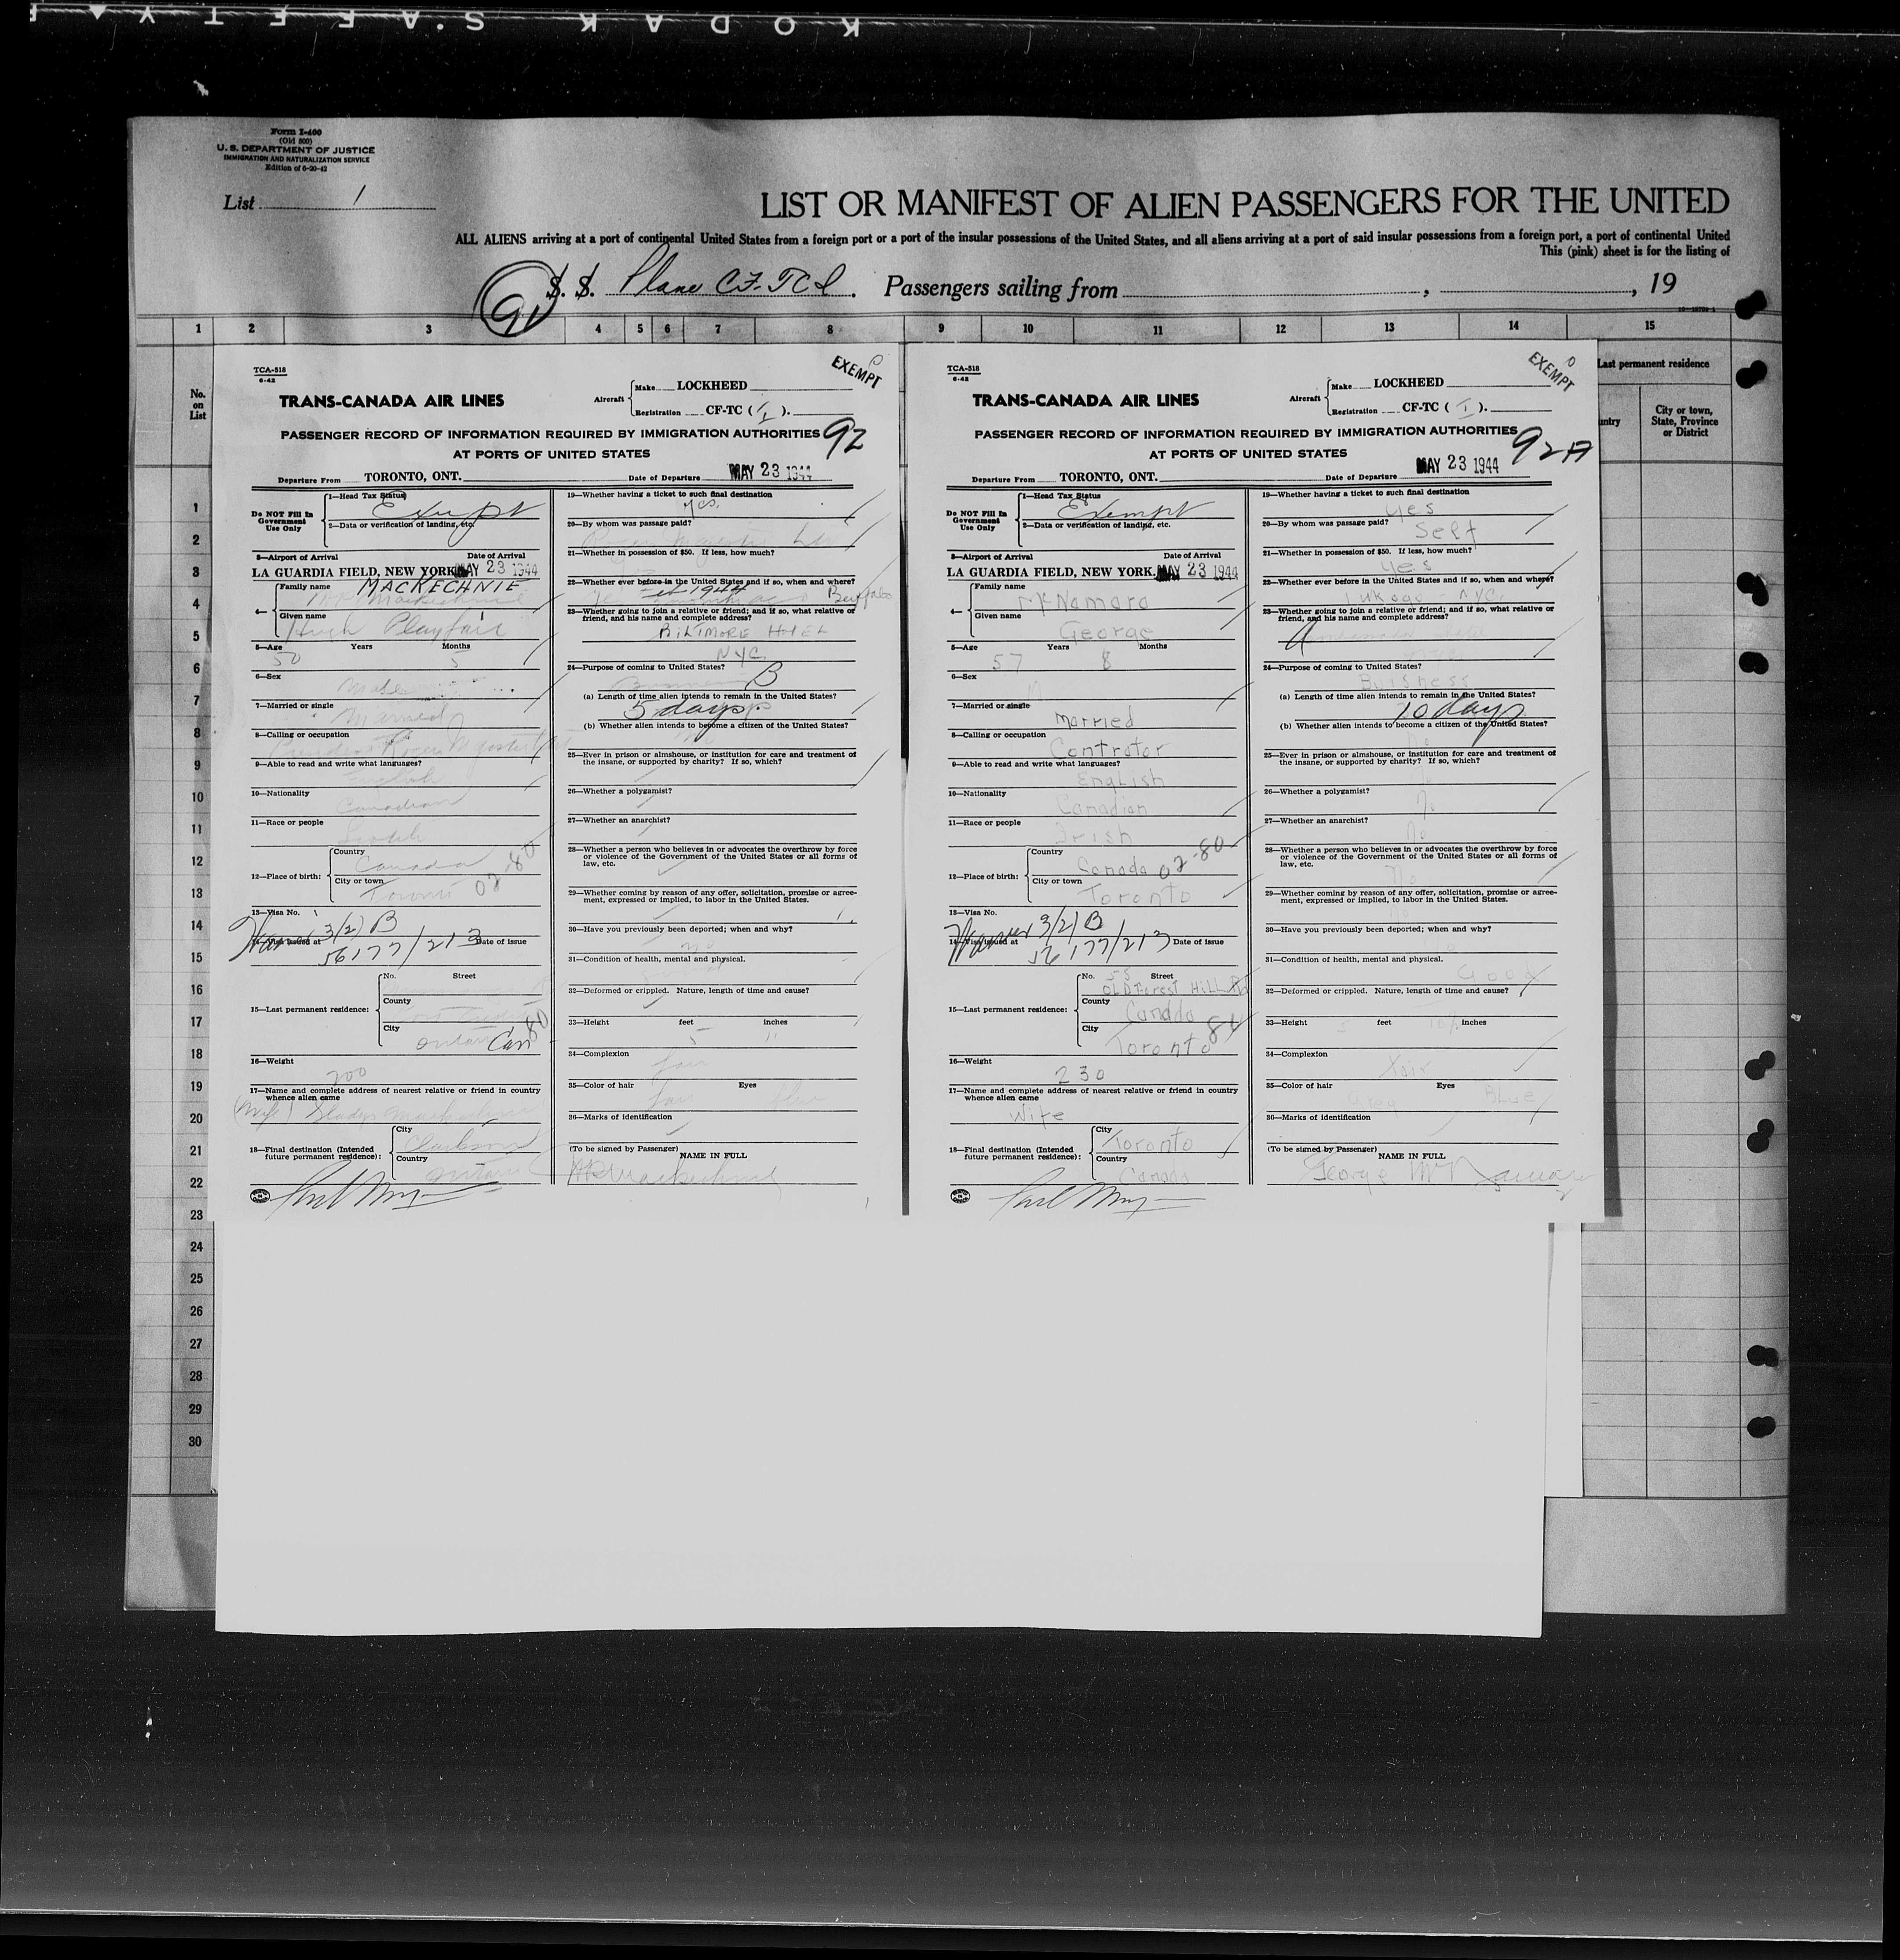 KODAK SAFETY
Form I-400
(Old 500)
U. S. DEPARTMENT OF JUSTICE
IMMIGRATION AND NATURALIZATION SERVICE
Edition of 6-20-42
List 1
LIST OR MANIFEST OF ALIEN PASSENGERS FOR THE UNITED
ALL ALIENS arriving at a port of continental United States from a foreign port or a port of the insular possessions of the United States, and all aliens arriving at a port of said insular possessions from a foreign port, a port of continental United
This (pink) sheet is for the listing of
91 S. S. Plane CF-TCI. Passengers sailing from , , 19
1 2 3 4 5 6 7 8 9 10 11 12 13 14 15
No.
on
List
Last permanent residence
City or town,
State, Province
or District
1
2
3
4
5
6
7
8
9
10
11
12
13
14
15
16
17
18
19
20
21
22
23
24
25
26
27
28
29
30
TCA-518
6-42
EXEMPT
TRANS-CANADA AIR LINES
Aircraft
Make LOCKHEED
Registration CF-TC ( I ).
PASSENGER RECORD OF INFORMATION REQUIRED BY IMMIGRATION AUTHORITIES 92
AT PORTS OF UNITED STATES
Departure From TORONTO, ONT. Date of Departure MAY 23 1944
Do NOT Fill In
Government
Use Only
1—Head Tax Status
Exempt
2—Data or verification of landing, etc.
3—Airport of Arrival Date of Arrival
LA GUARDIA FIELD, NEW YORK. MAY 23 1944
4— Family name MACKECHNIE
Given name
Hugh Playfair
5—Age Years Months
50 5
6—Sex
Male
7—Married or single
Married
8—Calling or occupation
President
9—Able to read and write what languages?
English
10—Nationality
Canadian
11—Race or people
Scotch
12—Place of birth:
Country
Canada
City or town
Toronto 02-80
13—Visa No.
3/2/B
14—Visa issued at Date of issue
56177/213
15—Last permanent residence:
No. Street
County
City
Ontario Can 80
16—Weight
200
17—Name and complete address of nearest relative or friend in country
whence alien came
(Wife) Gladys
18—Final destination (Intended
future permanent residence):
City
Clarkson
Country
Ontario
19—Whether having a ticket to such final destination
yes
20—By whom was passage paid?
21—Whether in possession of $50. If less, how much?
22—Whether ever before in the United States and if so, when and where?
1944 Buffalo
23—Whether going to join a relative or friend; and if so, what relative or
friend, and his name and complete address?
BILTMORE HOTEL
NYC
24—Purpose of coming to United States?
Business B
(a) Length of time alien intends to remain in the United States?
5 days
(b) Whether alien intends to become a citizen of the United States?
25—Ever in prison or almshouse, or institution for care and treatment of
the insane, or supported by charity? If so, which?
26—Whether a polygamist?
27—Whether an anarchist?
28—Whether a person who believes in or advocates the overthrow by force
or violence of the Government of the United States or all forms of
law, etc.
29—Whether coming by reason of any offer, solicitation, promise or agree-
ment, expressed or implied, to labor in the United States.
30—Have you previously been deported; when and why?
no
31—Condition of health, mental and physical.
32—Deformed or crippled. Nature, length of time and cause?
33—Height feet inches
5 11
34—Complexion
fair
35—Color of hair Eyes
fair blue
36—Marks of identification
(To be signed by Passenger)
NAME IN FULL
TCA-518
6-42
EXEMPT
TRANS-CANADA AIR LINES
Aircraft
Make LOCKHEED
Registration CF-TC ( I ).
PASSENGER RECORD OF INFORMATION REQUIRED BY IMMIGRATION AUTHORITIES 92A
AT PORTS OF UNITED STATES
Departure From TORONTO, ONT. Date of Departure MAY 23 1944
Do NOT Fill In
Government
Use Only
1—Head Tax Status
Exempt
2—Data or verification of landing, etc.
3—Airport of Arrival Date of Arrival
LA GUARDIA FIELD, NEW YORK. MAY 23 1944
4— Family name
McNamara
Given name
George
5—Age Years Months
57 8
6—Sex
M
7—Married or single
Married
8—Calling or occupation
Contrator
9—Able to read and write what languages?
English
10—Nationality
Canadian
11—Race or people
Irish
12—Place of birth:
Country
Canada 02-80
City or town
Toronto
13—Visa No.
3/2/B
14—Visa issued at Date of issue
56177/213
15—Last permanent residence:
No. 55 Street
OLD Forest HiLL Rd
County
Canada
City
Toronto
16—Weight
230
17—Name and complete address of nearest relative or friend in country
whence alien came
Wife
18—Final destination (Intended
future permanent residence):
City
Toronto
Country
Canada
19—Whether having a ticket to such final destination
yes
20—By whom was passage paid?
Self
21—Whether in possession of $50. If less, how much?
yes
22—Whether ever before in the United States and if so, when and where?
NYC
23—Whether going to join a relative or friend; and if so, what relative or
friend, and his name and complete address?
24—Purpose of coming to United States?
Buisness
(a) Length of time alien intends to remain in the United States?
10 days
(b) Whether alien intends to become a citizen of the United States?
No
25—Ever in prison or almshouse, or institution for care and treatment of
the insane, or supported by charity? If so, which?
26—Whether a polygamist?
No
27—Whether an anarchist?
No
28—Whether a person who believes in or advocates the overthrow by force
or violence of the Government of the United States or all forms of
law, etc.
No
29—Whether coming by reason of any offer, solicitation, promise or agree-
ment, expressed or implied, to labor in the United States.
No
30—Have you previously been deported; when and why?
31—Condition of health, mental and physical.
Good
32—Deformed or crippled. Nature, length of time and cause?
33—Height feet inches
5 10½
34—Complexion
Fair
35—Color of hair Eyes
Grey Blue
36—Marks of identification
(To be signed by Passenger)
NAME IN FULL
George McNamara